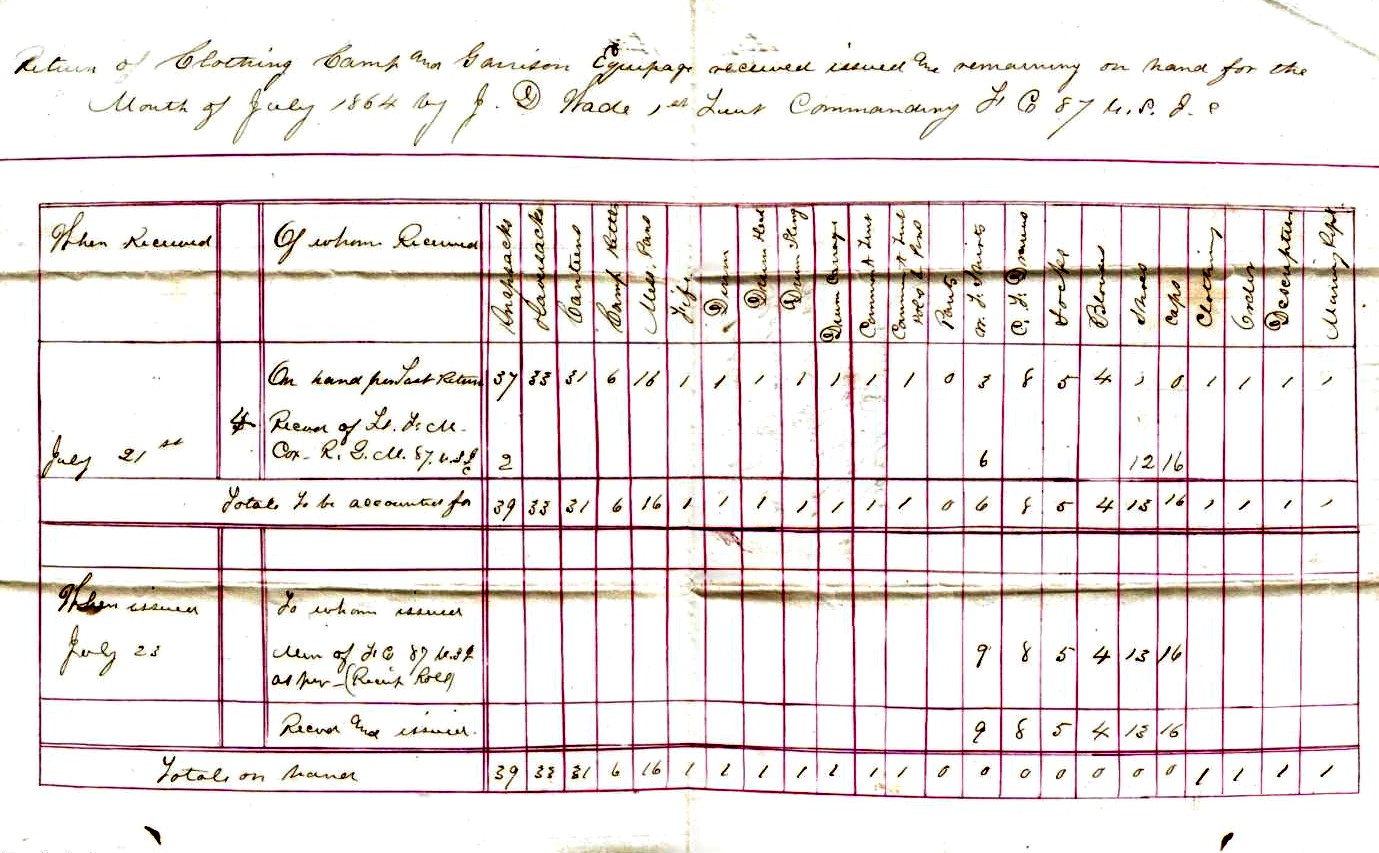 Return of Clothing Camp and Garrison Equipage received issued and remaining on hand for the
Month of July 1864 by J. D Wade 1st Lieut Commanding F Co 87 U.S. I. c
When Received Of whom Received Knapsacks Haversacks Canteens Camp Kettles Mess Pans Fife Drum Drum Head Drum Sling Drum Carriage Common Tent Common Tent Poles & Pins Pants W. F. Shirts C. F. Drawers Socks Blouses Shoes Caps Clothing Order Descriptive
On hand per Last Return 37 33 31 6 16 1 1 1 1 1 1 1 0 3 8 5 4 1 0 1 1 1 1
4 Recvd of Lt. F. M.
July 21st Cox R. Q. M. 87. U.S.I c 2 6 12 16
Totals to be accounted for 39 33 31 6 16 1 1 1 1 1 1 1 0 6 8 5 4 13 16 1 1 1 1
When issued To whom issued
July 23 Men of F Co 87 U.S I 9 8 5 4 13 16
as per (Receipt Roll)
Recvd and issued. 9 8 5 4 13 16
Totals on hand 39 33 31 6 16 1 1 1 1 1 1 1 0 0 0 0 0 0 0 1 1 1 1